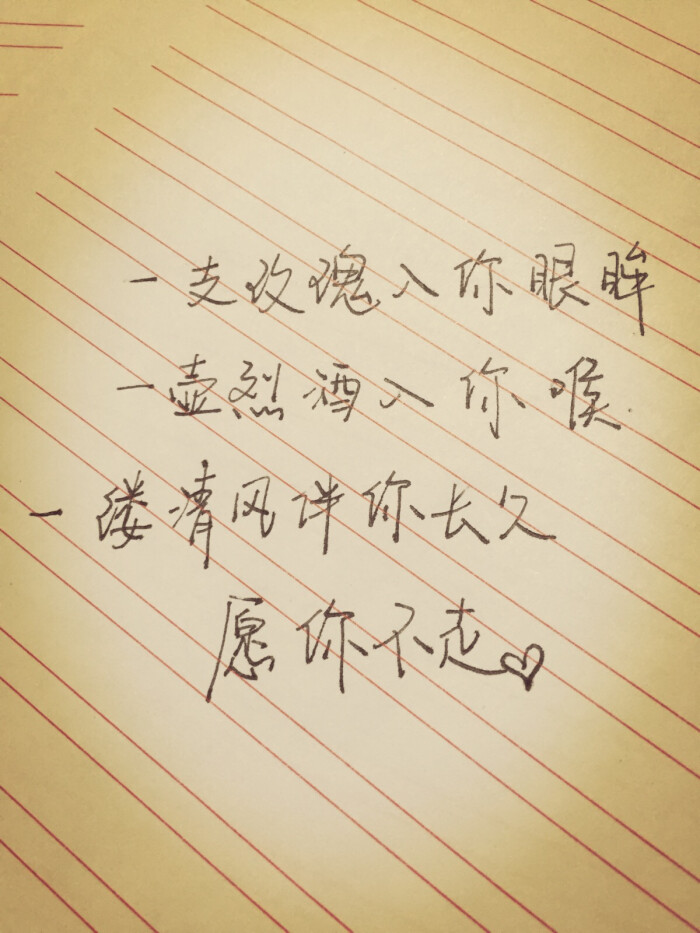 一支玫瑰入你眼眸
一壶烈酒入你喉
一缕清风伴你长久
愿你不走